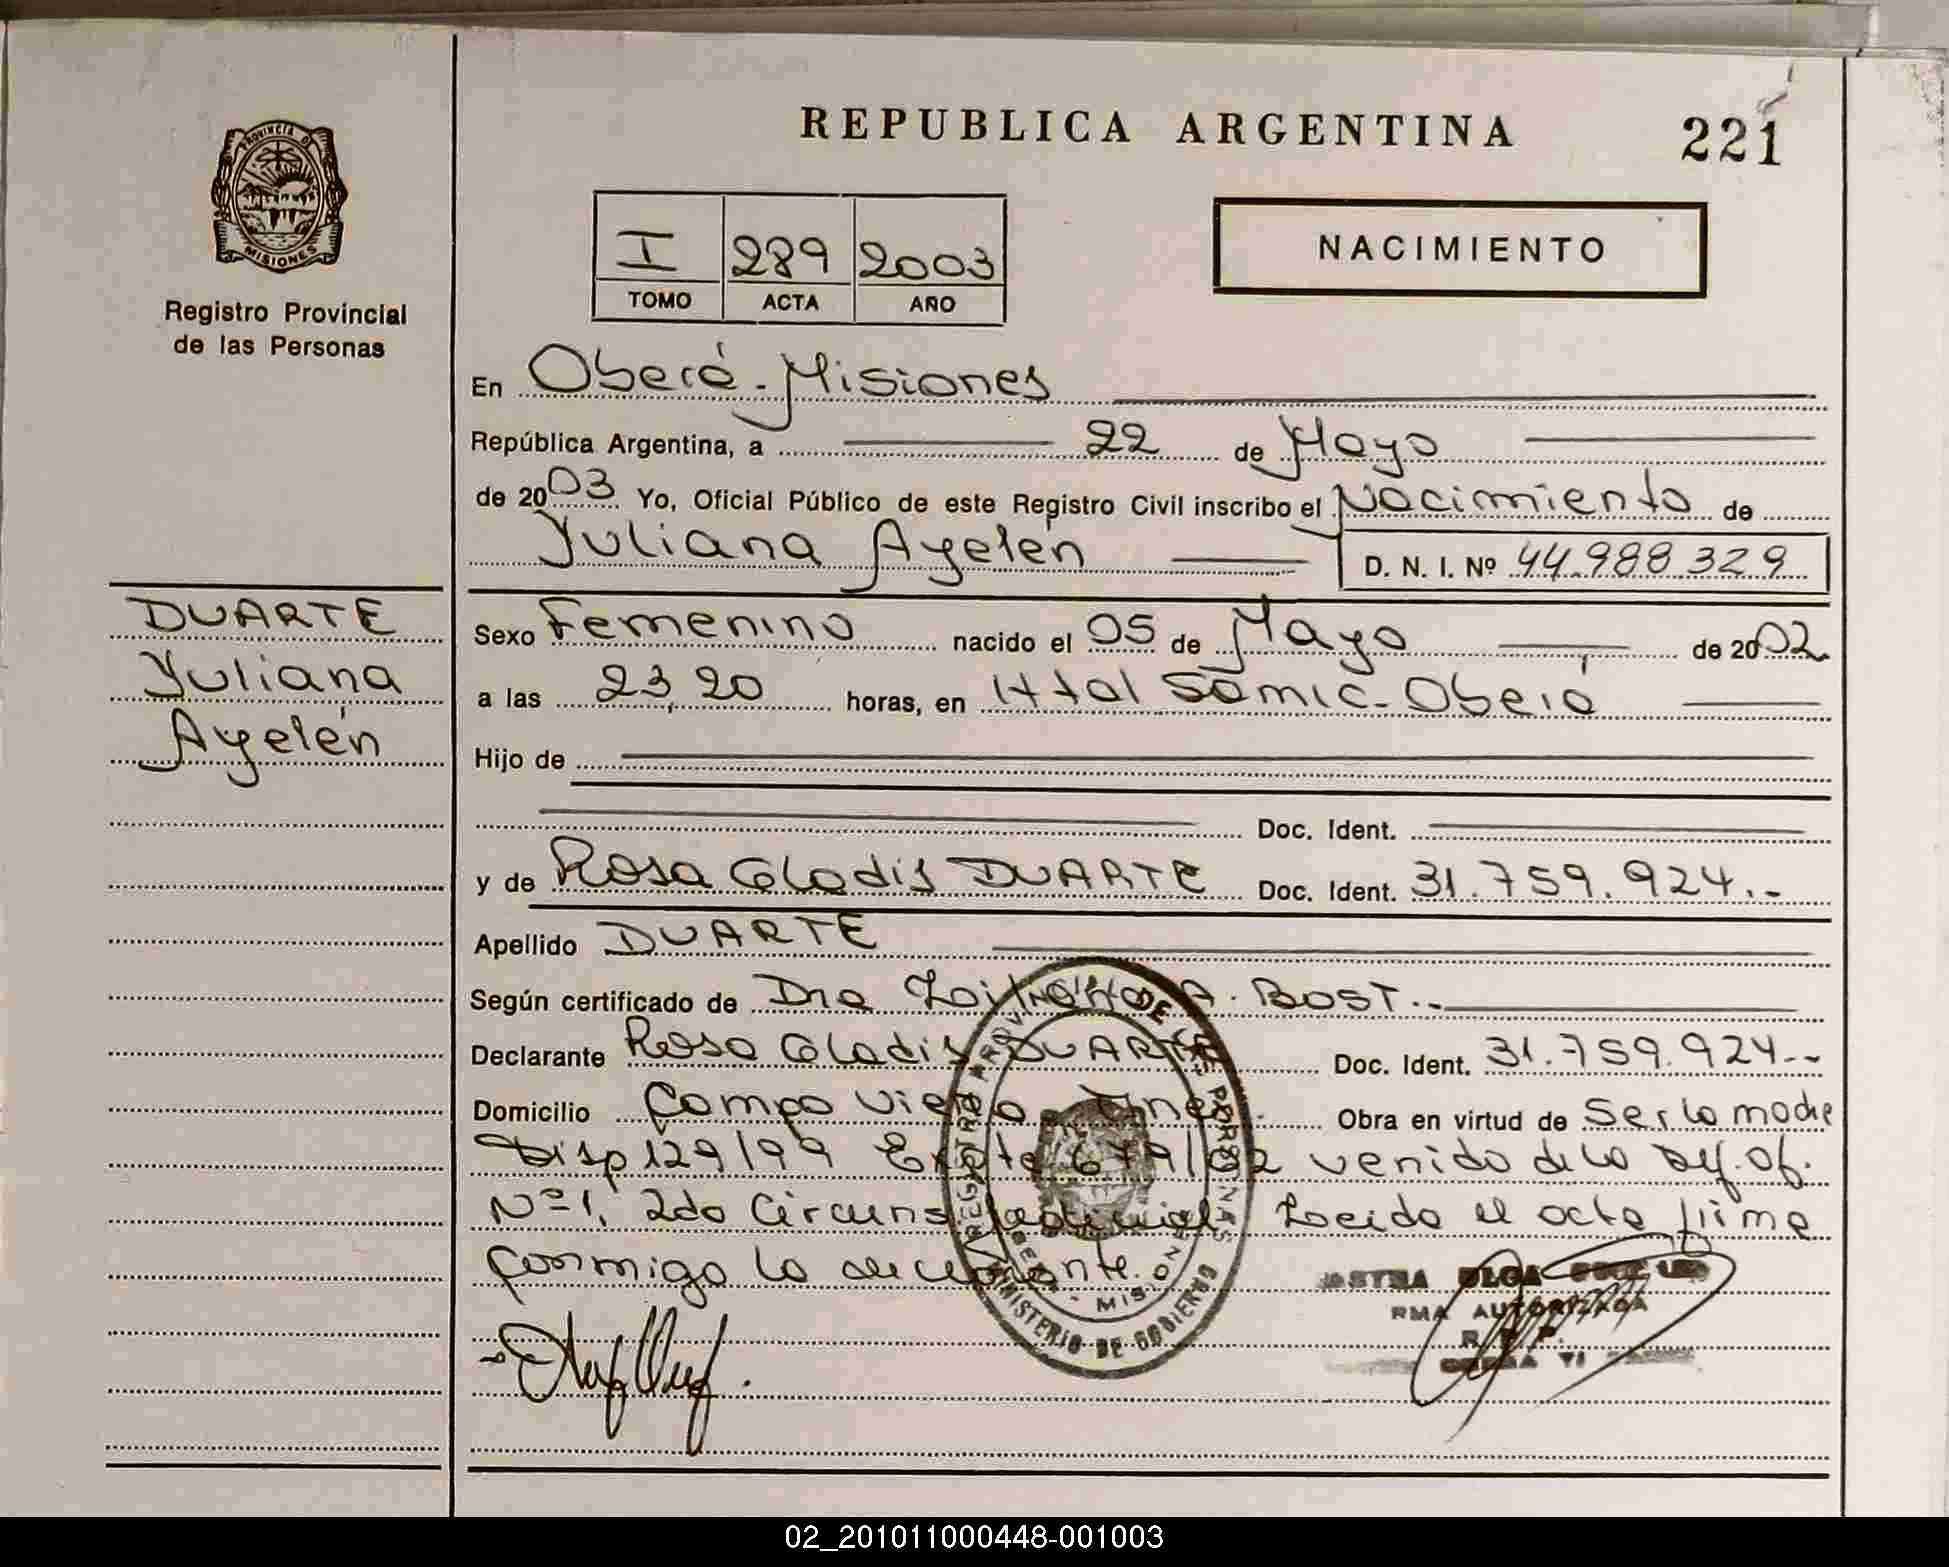 REPUBLICA ARGENTINA
221
PROVINCIA DE
MISIONES
Registro Provincial
de las Personas
I 289 2003
TOMO ACTA AÑO
NACIMIENTO
En Oberá-Misiones
República Argentina, a 22 de Mayo
de 2003 Yo, Oficial Público de este Registro Civil inscribo el Nacimiento de
Yuliana Ayelén D. N. I. Nº 44.988.329
DUARTE
Yuliana
Ayelén
Sexo Femenino nacido el 05 de Mayo de 2002
a las 23,20 horas, en Htal Samic-Oberá
Hijo de
Doc. Ident.
y de Rosa Gladis DUARTE Doc. Ident. 31.759.924.-
Apellido DUARTE
Según certificado de Dra A. BOST.-
Declarante Rosa Gladis DUARTE Doc. Ident. 31.759.924.-
Domicilio Campo Viera Obra en virtud de ser la madre
Disp 129/99 Expte 679/02 venido de la Of.
Nº1, 2da Circuns Judicial Leida el acta firma
conmigo la declarante.
REGISTRO PROVINCIAL DE LAS PERSONAS
MINISTERIO DE GOBIERNO
OLGA
RMA AUTORIZADA
02_201011000448-001003